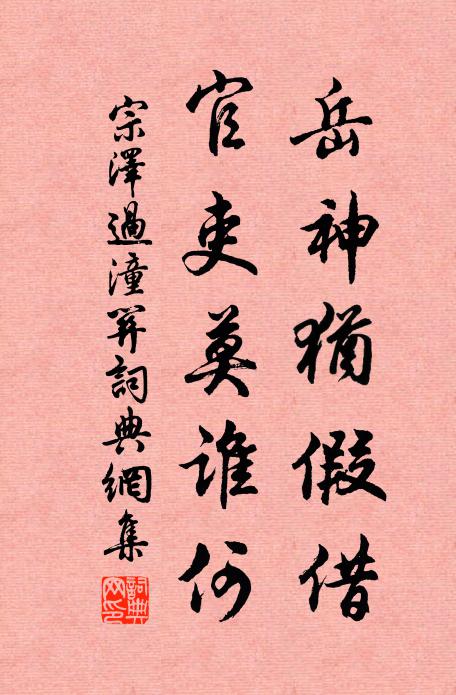 岳神猶假借
官吏莫誰何
宗澤過潼關詞典網集
詞典网印